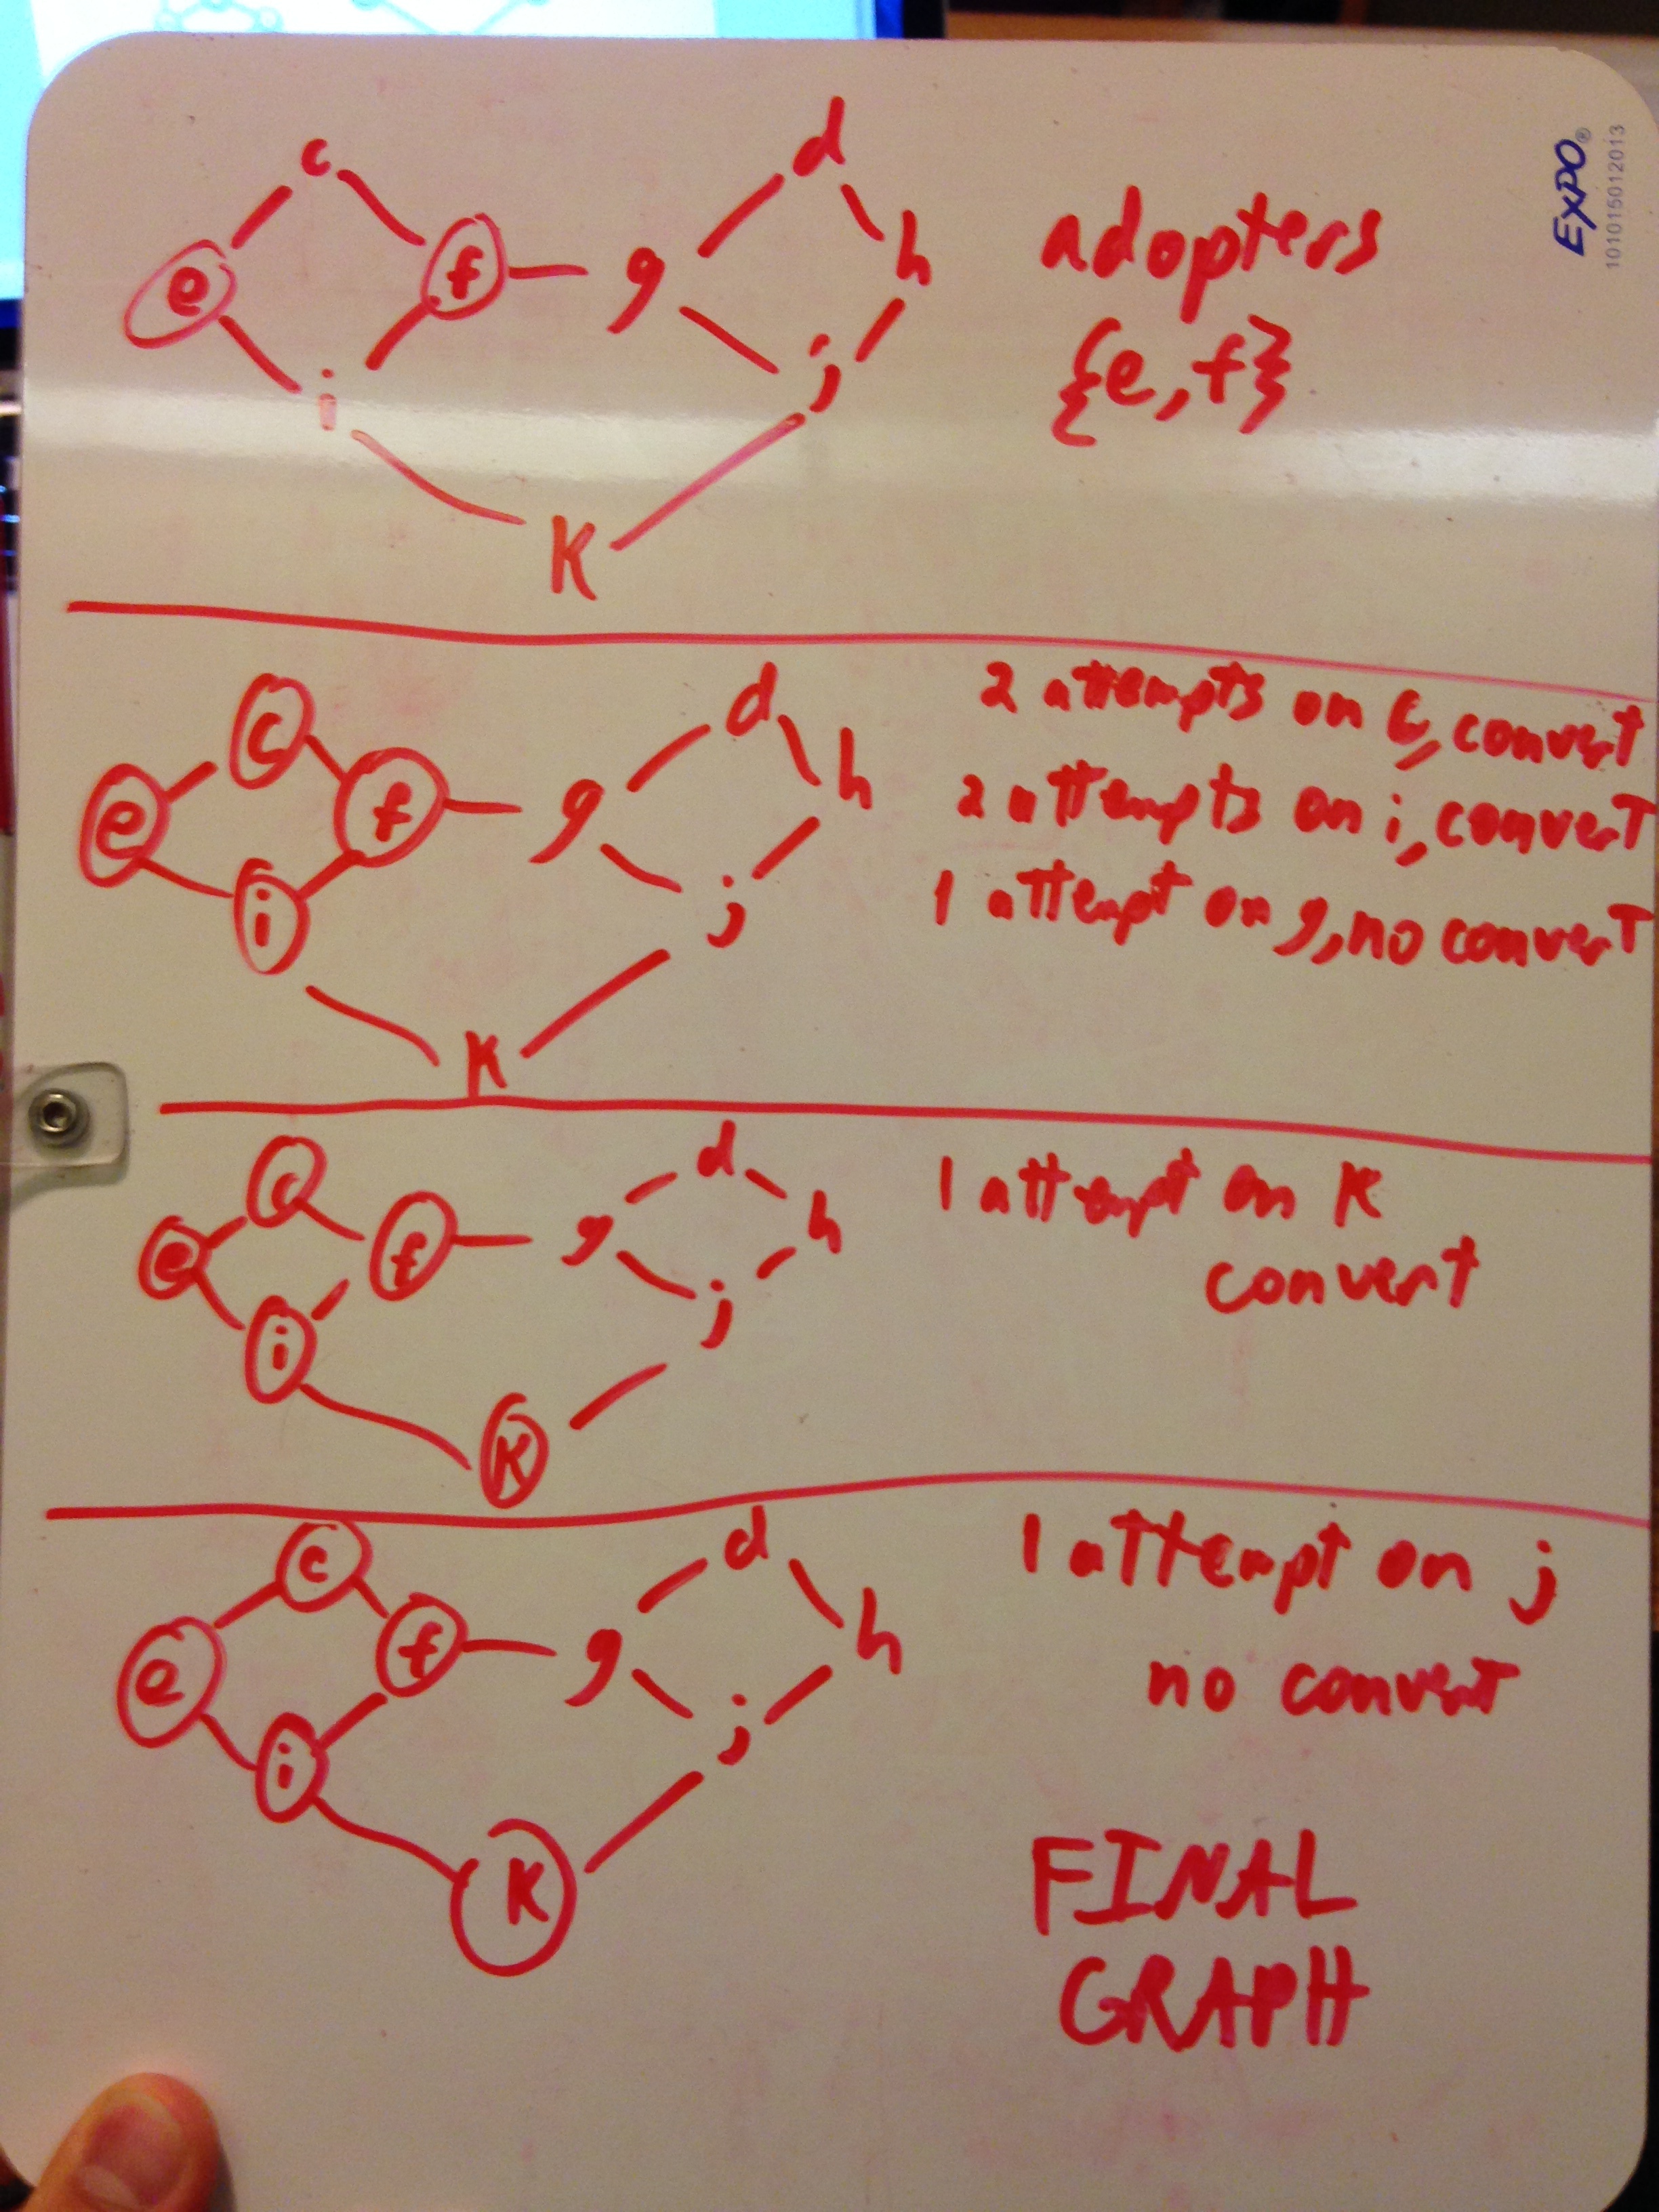 c
d
e
f
g
h
i
j
K
adopters
{e,f}
EXPO®
101015012013
c
d
e
f
g
h
i
j
K
2 attempts on c, convert
2 attempts on i, convert
1 attempt on g, no convert
c
d
e
f
g
h
i
j
K
1 attempt on K
convert
c
d
e
f
g
h
i
j
K
1 attempt on j
no convert
FINAL
GRAPH